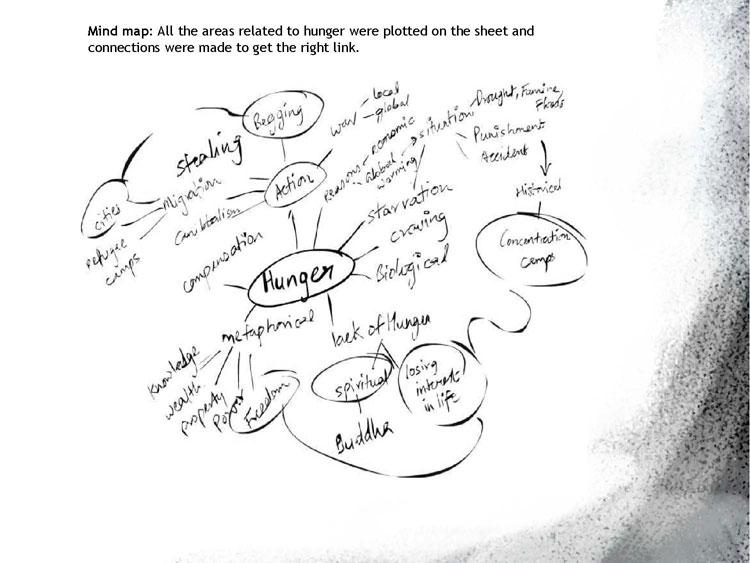 Mind map: All the areas related to hunger were plotted on the sheet and
connections were made to get the right link.
Begging
war
local
global
Drought, Famine,
Floods
stealing
Reasons
economic
Global
warming
situation
Punishment
Accident
cities
Migration
Action
refugee
camps
Cannibalism
starvation
Historical
compensation
craving
Concentration
camps
Hunger
Biological
metaphorical
lack of Hunger
Knowledge
wealth
property
Power
Freedom
spiritual
losing
interest
in life
Buddha